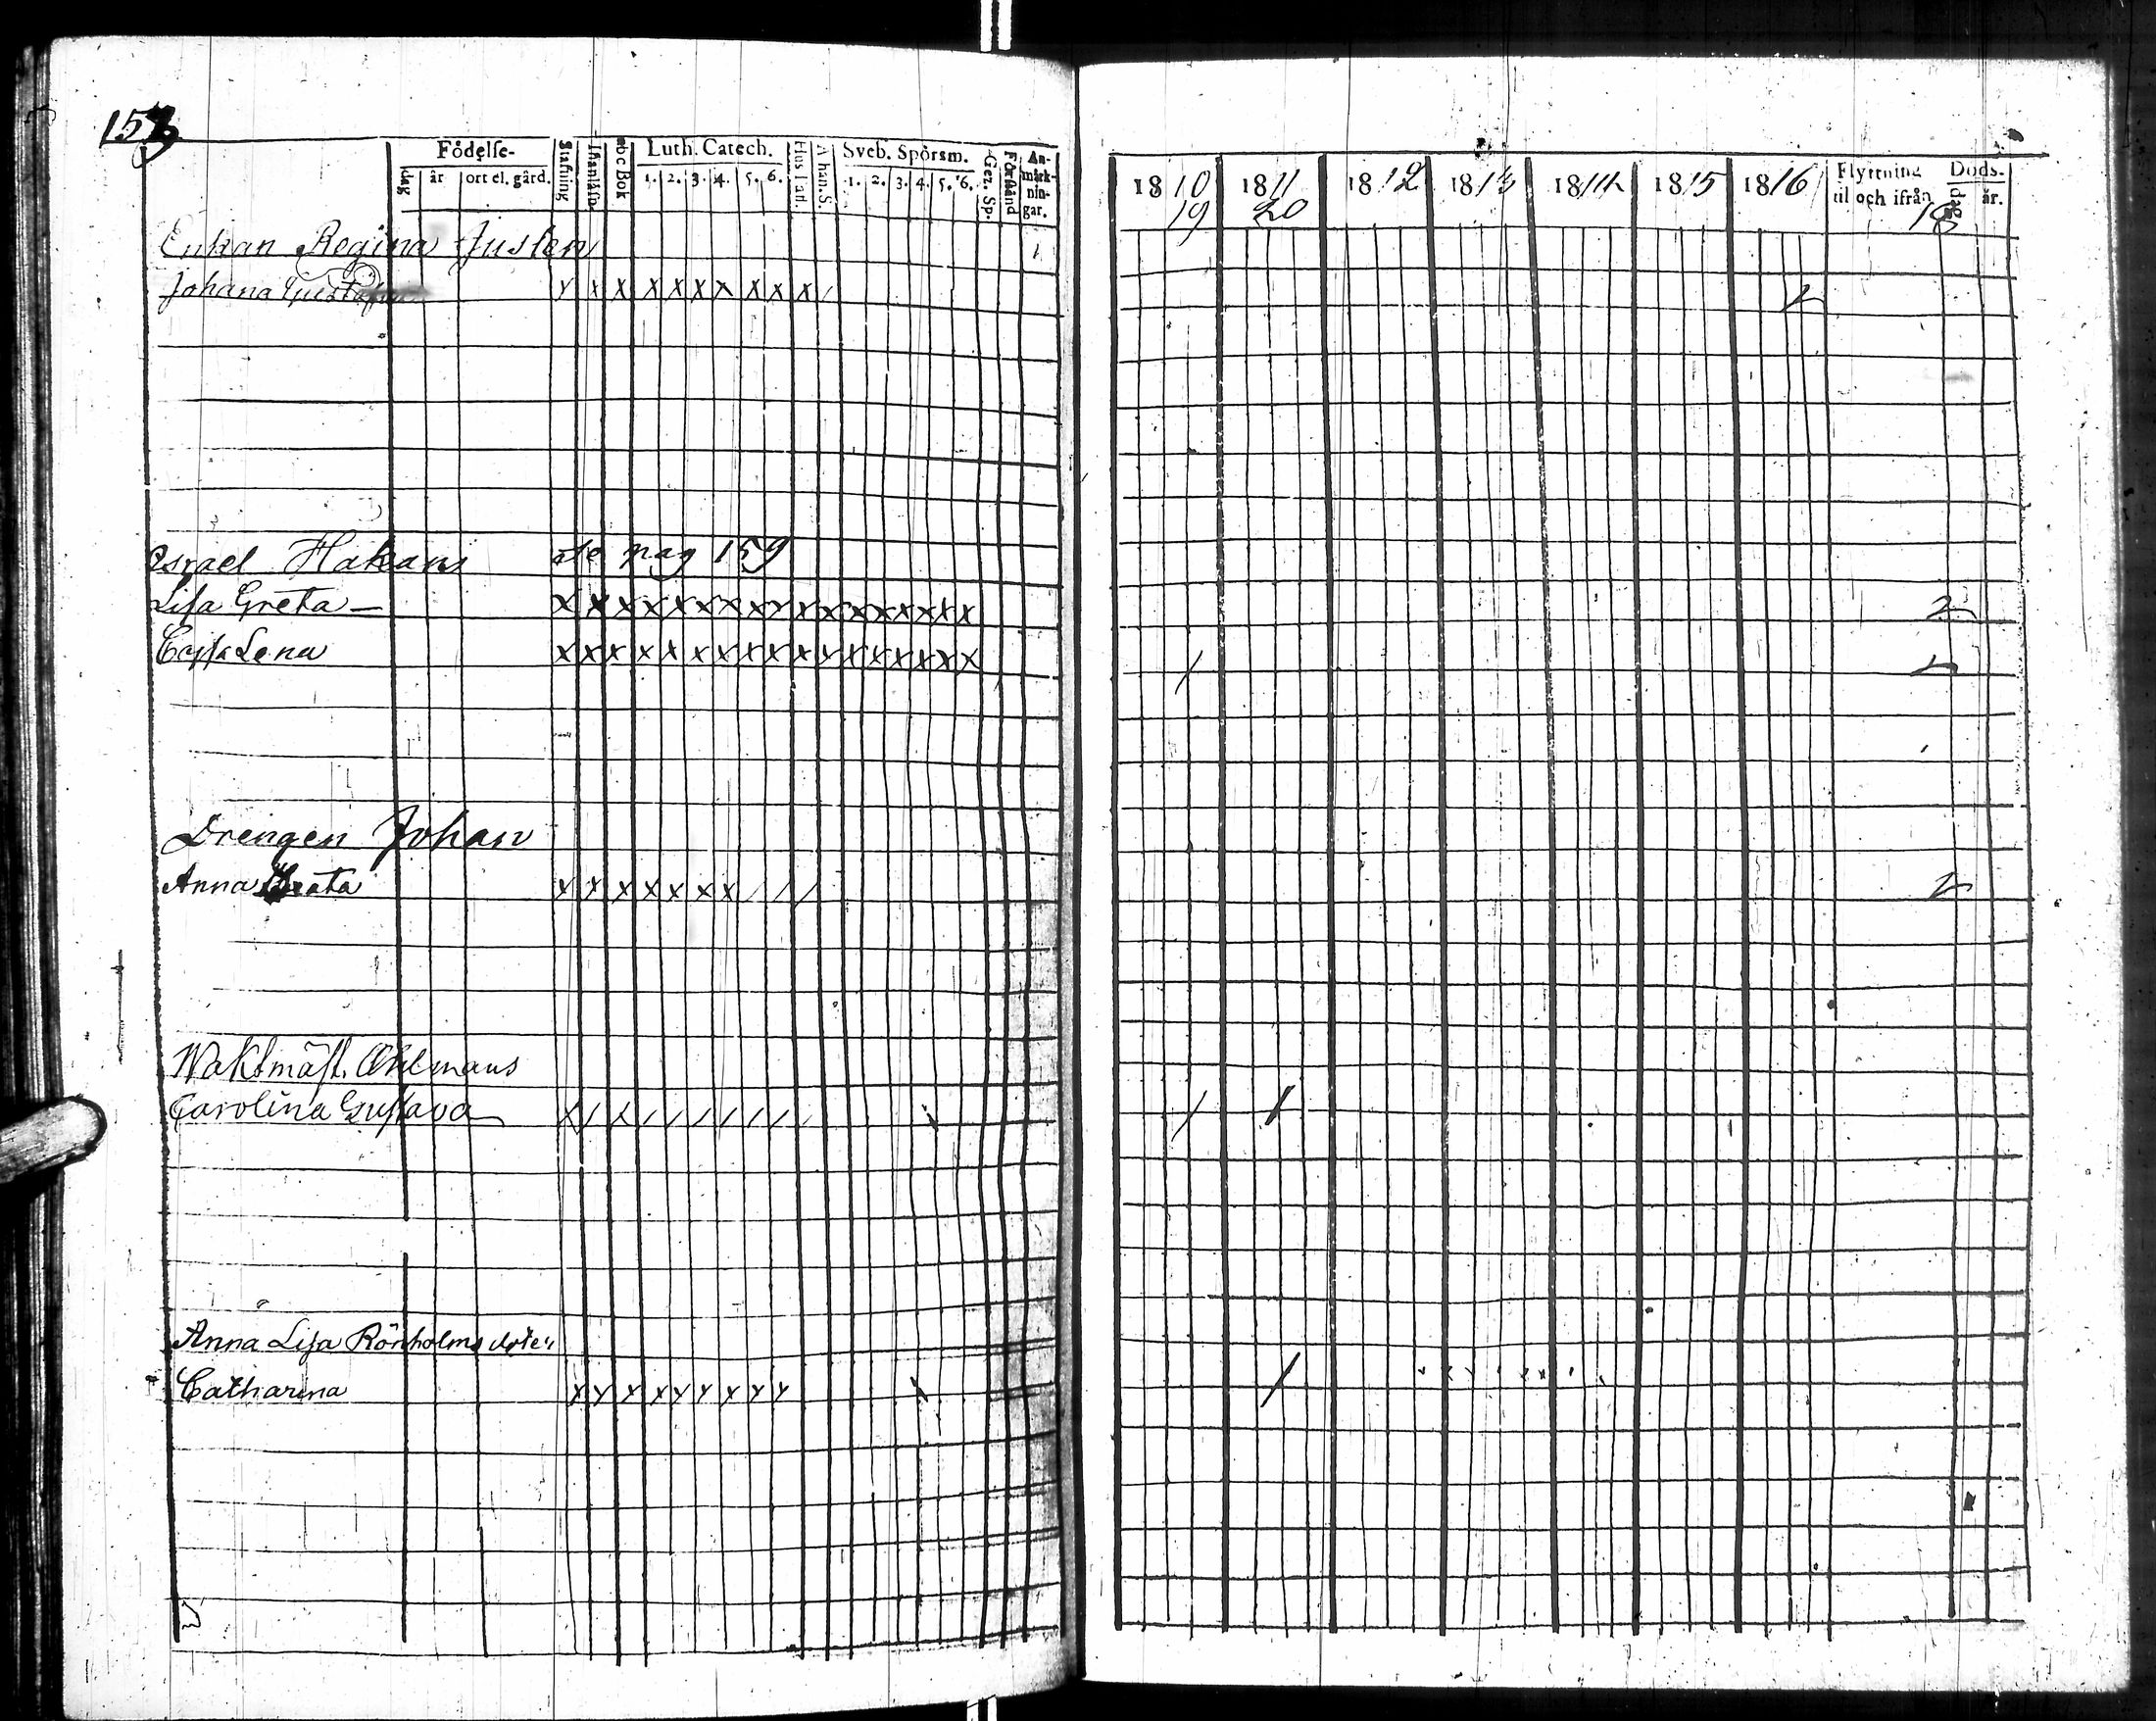 153
Födelse-
dag år ort el. gård.
Stafning
Innanläsn.
abc Bok
Luth. Catech.
1. 2. 3. 4. 5. 6.
Hus Taf.
Athan. S.
Sveb. Spörsm.
1. 2. 3. 4. 5. 6.
Gez. Sp.
Förstånd
An-
märk-
nin-
gar.
1810 1811 1812 1813 1814 1815 1816 Flyttning
til och ifrån
Döds-
dag år.
19 20 18
Enkan Regina Justen 1
Johana Gustafva x x x x x x x x x x / 2
Israel Hakans se pag 159
Lisa Greta — x x x x x x x x x x x x x x x x x 2
Cajsa Lena x x x x x x x x x x x x x x x x x / 2
Drengen Johan
Anna Greta x x x x x x x / / / 2
Waktmäst. Öhlmans
Carolina Gustava x / x / / / / / / / / /
Anna Lisa Rönholms doter
Catharina x x x x x x x x x /